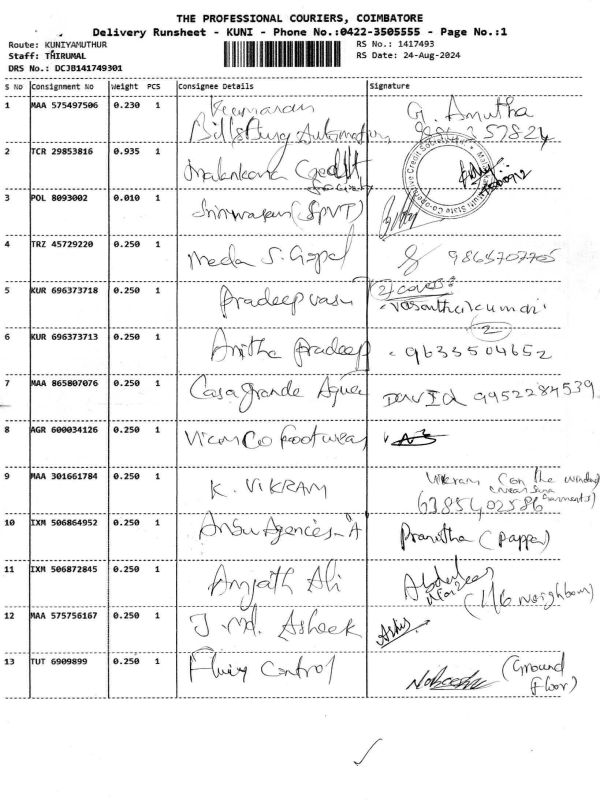 THE PROFESSIONAL COURIERS, COIMBATORE
Delivery Runsheet - KUNI - Phone No.:0422-3505555 - Page No.:1
Route: KUNIYAMUTHUR
RS No.: 1417493
Staff: THIRUMAL
RS Date: 24-Aug-2024
DRS No.: DCJB141749301
S No Consignment No Weight PCS Consignee Details Signature
1 MAA 575497506 0.230 1 Kumaran G. Amutha
Automation
2 TCR 29853816 0.935 1 Credit
Society
3 POL 8093002 0.010 1 Srinivasan (SPVT)
4 TRZ 45729220 0.250 1 Meda S. Gopal 9865707705
5 KUR 696373718 0.250 1 Pradeep vasu (2) covers
Vasanthakumari
2
6 KUR 696373713 0.250 1 Anitha Pradeep 9633504652
7 MAA 865807076 0.250 1 Casagrande Aquea David 9952284539
8 AGR 600034126 0.250 1 Footwear
9 MAA 301661784 0.250 1 K. VIKRAM Vikram (on the window)
6385402586
10 IXM 506864952 0.250 1 Ansu Agencies - "A" Pranitha (Pappa)
11 IXM 506872845 0.250 1 Amjath Ali
(116 neighbour)
12 MAA 575756167 0.250 1 J Md. Asheek
13 TUT 6909899 0.250 1 Control (Ground
Floor)